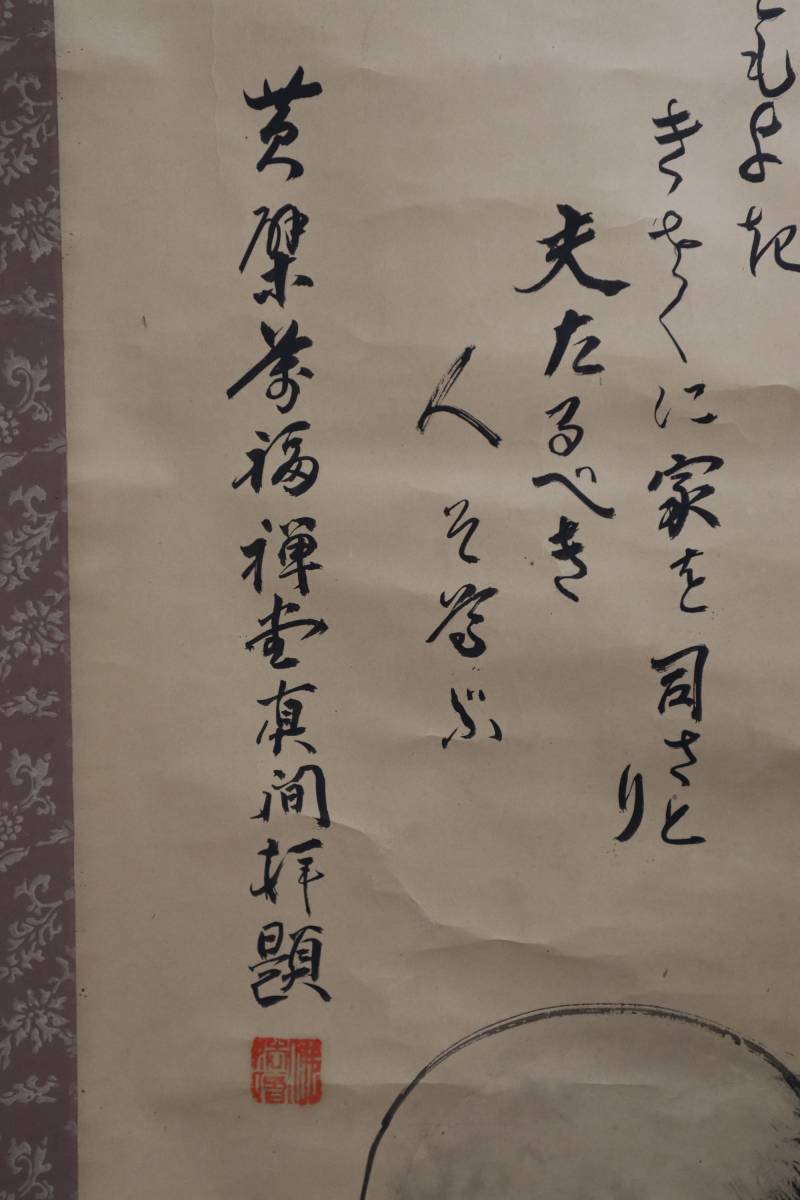 もよき
きさくに家を司さと
り
夫たるべき
人そ尊ぶ
黄檗萬福禅堂真澗拝題